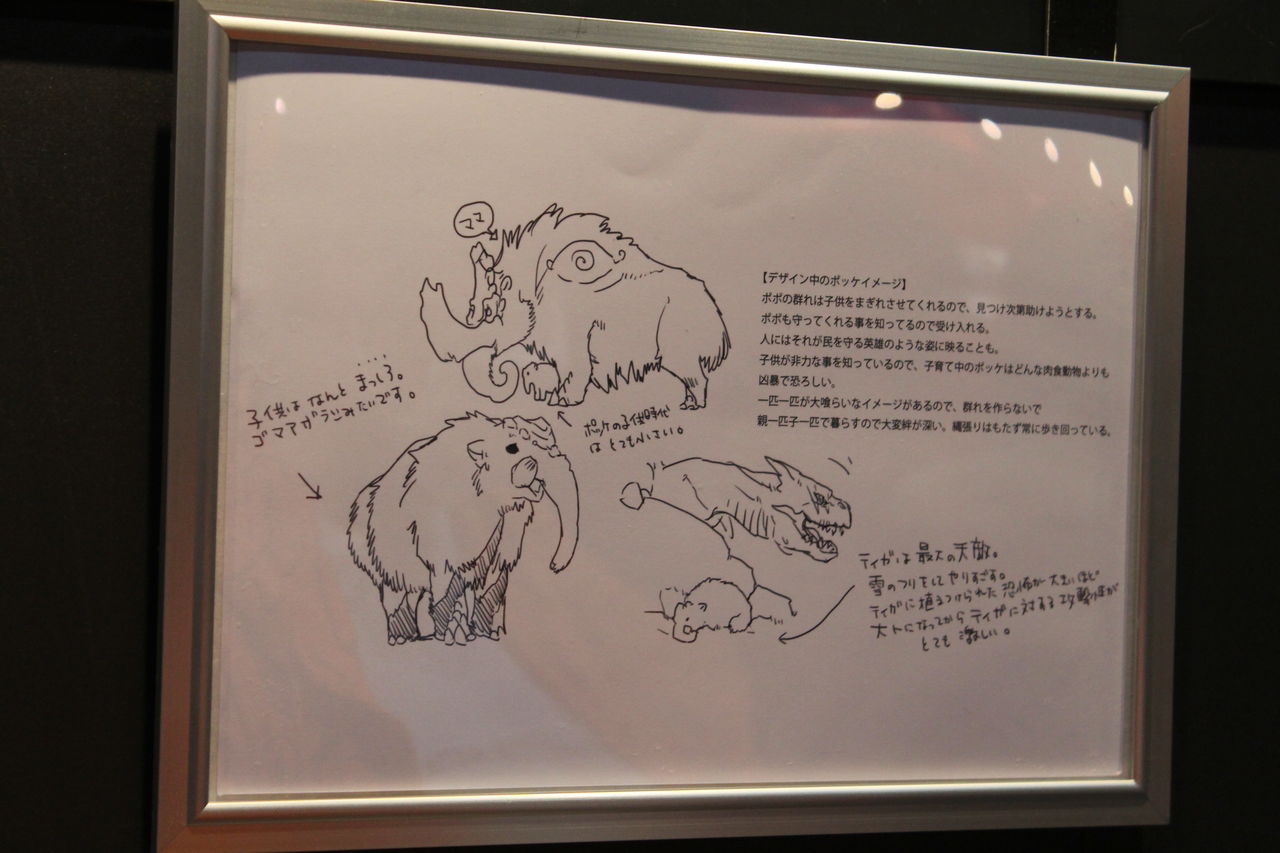 ココ
【デザイン中のポッケイメージ】
ポポの群れは子供をまぎれさせてくれるので、見つけ次第助けようとする。
ポポも守ってくれる事を知ってるので受け入れる。
人にはそれが民を守る英雄のような姿に映ることも。
子供が非力な事を知っているので、子育て中のポッケはどんな肉食動物よりも
凶暴で恐ろしい。
一匹一匹が大喰らいなイメージがあるので、群れを作らないで
親一匹子一匹で暮らすので大変絆が深い。縄張りはもたず常に歩き回っている。
子供は なんと まっしろ。
ゴマアザラシみたいです。
ポッケの子供時代
は とても小さい。
ティガは 最大の天敵。
雪のフリをして やりすごす。
ティガに植えつけられた 恐怖が 大きいほど
大人になってから ティガに対する 攻撃性が
とても 激しい。